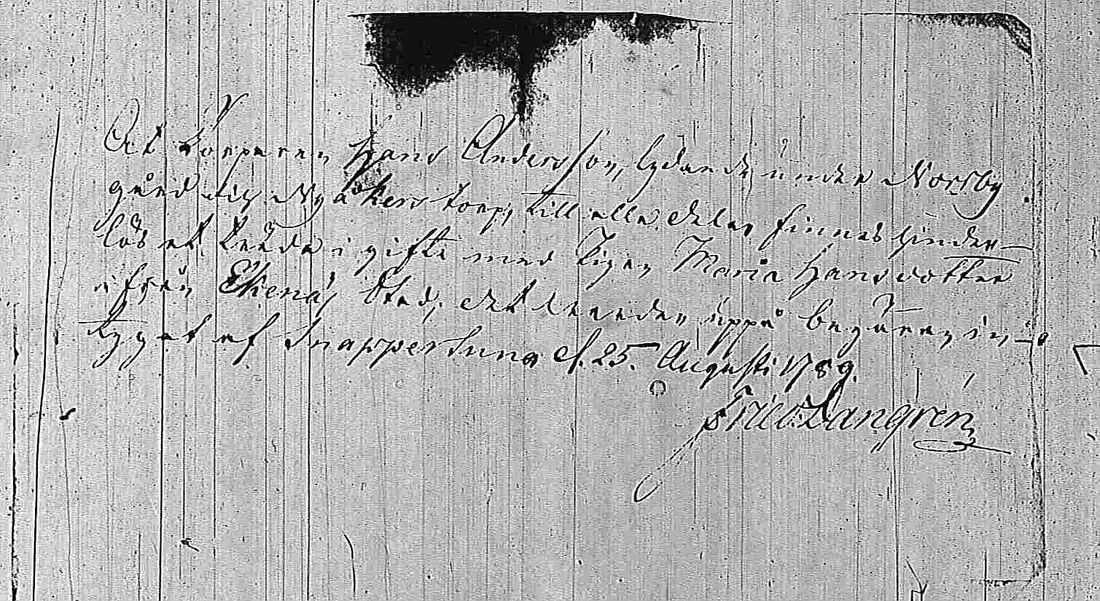 At Torparen Hans Andersson, lydande under Norrby
gård och Nyåkers torp, till alla delar finnes hinder-
lös at träda i gifte med Pigan Maria Hansdotter
ifrån Ekenäs Stad; det warder uppå begäran in-
tygat af Snappertuna d. 25. Augusti 1789.
Fried: Langrén